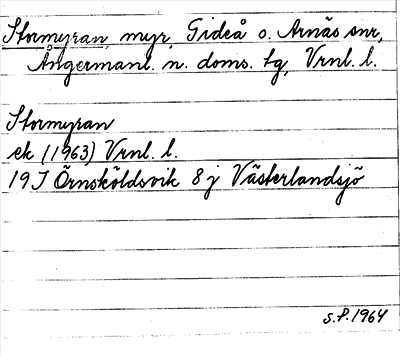 Stormyran, myr, Gideå o. Arnäs snr,
Ångermanl. n. doms. tg, Vrnl. l.
Stormyran
ek (1963) Vrnl. l.
19J Örnsköldsvik 8j Västerlandsjö
S.P. 1964